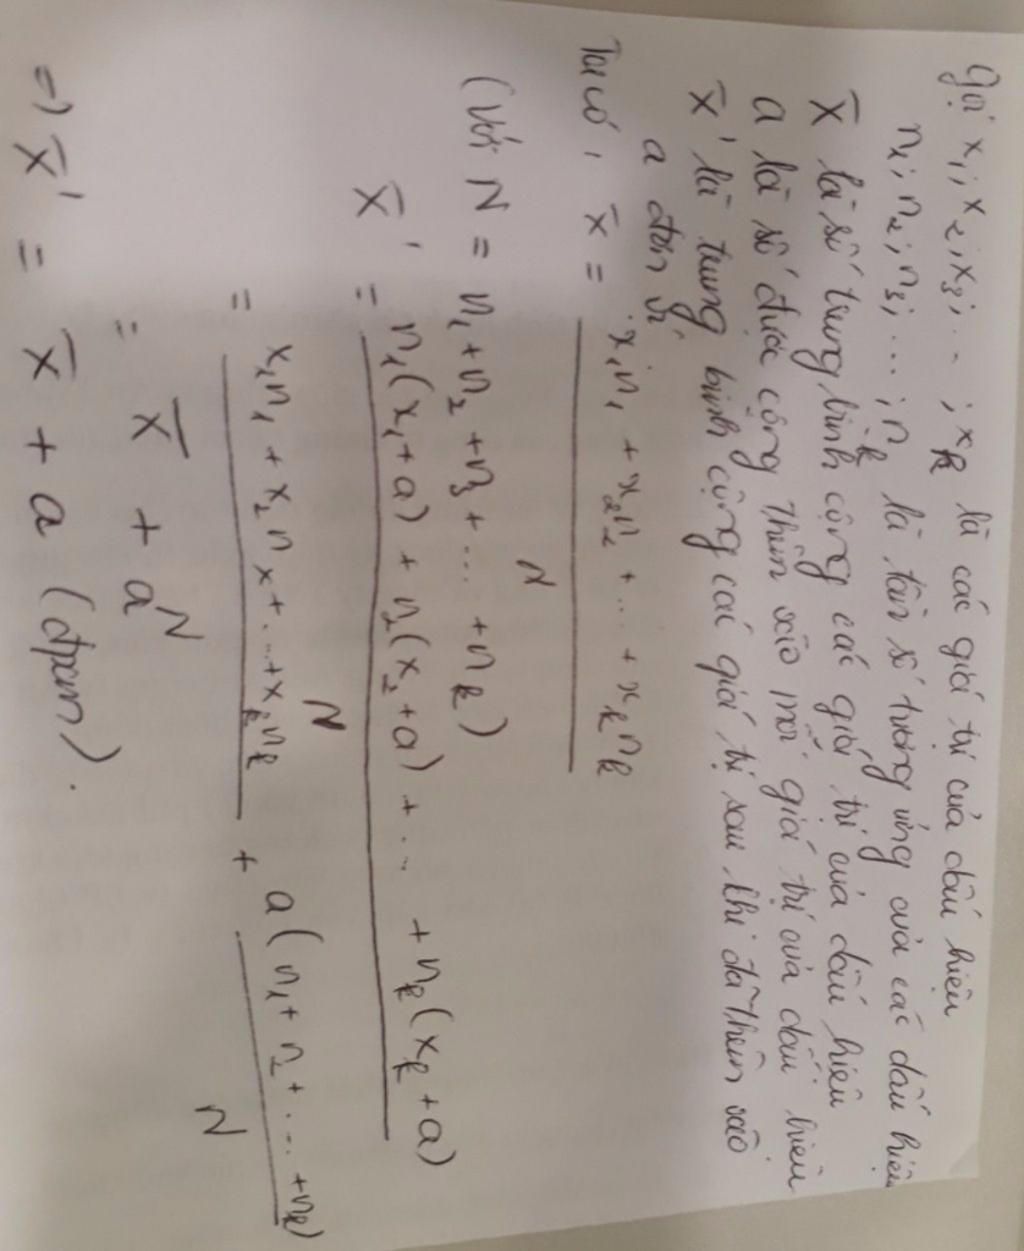 Gọi x₁; x₂; x₃; ... ; xₖ là các giá trị của dấu hiệu
n₁; n₂; n₃; ... ; nₖ là tần số tương ứng của các dấu hiệu
X̄ là số trung bình cộng các giá trị của dấu hiệu
a là số được cộng thêm vào mỗi giá trị của dấu hiệu
X̄' là trung bình cộng các giá trị sau khi đã thêm vào
a đơn vị
Ta có, X̄ = x₁n₁ + x₂n₂ + ... + xₖnₖ
N
(Với N = n₁ + n₂ + n₃ + ... + nₖ)
X̄' = n₁(x₁ + a) + n₂(x₂ + a) + ... + nₖ(xₖ + a)
N
= x₁n₁ + x₂n x + ... + xₖnₖ + a(n₁ + n₂ + ... + nₖ)
N N
= X̄ + a
=) X̄' = X̄ + a (đpcm).